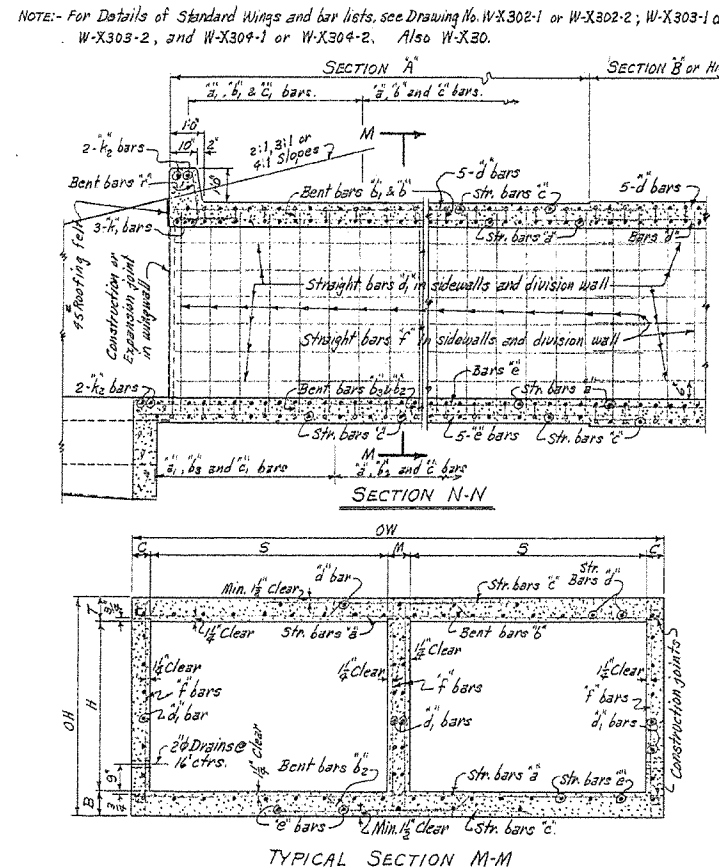 NOTE:- For Details of Standard Wings and bar lists, see Drawing No. W-X302-1 or W-X302-2; W-X303-1 o
W-X303-2, and W-X304-1 or W-X304-2. Also W-X30.
SECTION "A"
SECTION "B" or
"a1", "b1" & "c1" bars.
"a", "b" and "c" bars.
1'-0"
10" 2"
M
2:1, 3:1 or
4:1 Slopes
2-"k2" bars
Bent bars "r"
Bent bars "b1" & "b"
5-"d" bars
Str. bars "c"
5-"d" bars
3-"k1" bars
Str. bars "a"
Bars "d"
45# Roofing felt
Construction or
Expansion joint
in wingwall
Straight bars "d1" in sidewalls and division wall
Straight bars "f" in sidewalls and division wall
Bars "e"
2-"k2" bars
Bent bars "b3" & "b2"
Str. bars "a"
6"
Str. bars "c"
5-"e" bars
Str. bars "c"
M
"a1", "b3" and "c1" bars
"a", "b2" and "c" bars
SECTION N-N
OW
C S M S C
"d" bar
Min. 1½" Clear
Str. bars "c"
Str.
Bars "d"
T
1¼" Clear
Str. bars "a"
Bent bars "b"
1¼" Clear
1¼" Clear
1¼" Clear
"f" bars
"f" bars
"f" bars
OH
H
"d1" bar
"d1" bars
"d1" bars
Construction joints
2"ϕ Drains @
16' ctrs.
9"
1¼" Clear
Bent bars "b2"
Str. bars "a"
Str. bars "e"
B
"e" bars
Min. 1½" Clear
Str. bars "c"
TYPICAL SECTION M-M